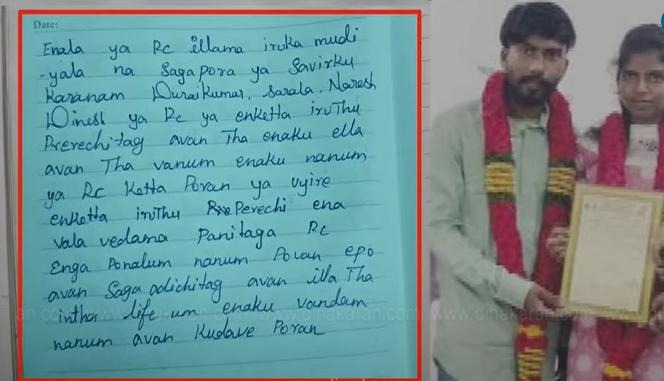 Date:
Enala ya Rc illama iruka mudi
-yala na Sagapora ya Savirku
Karanam Duraikumar, Sarala, Naresh
Dinesh ya Rc ya enketta iruThu
Prerechitag avan Tha enaku ella
avan Tha vanum enaku nanum
ya Rc Ketta Poran ya uyire
enketta iruthu Perechi ena
vala vedama Panitaga Rc
Enga Ponalum nanum Povan epo
avan Saga adichitag avan illa Tha
intha life um enaku vandam
nanum avan Kudave Poran
www.dinakaran.com